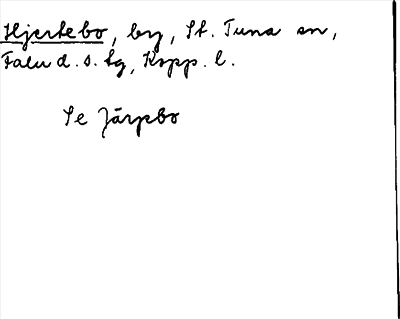 Hjertebo, by, St. Tuna sn,
Falu d. s. tg, Kopp. l.
Se Järpbo